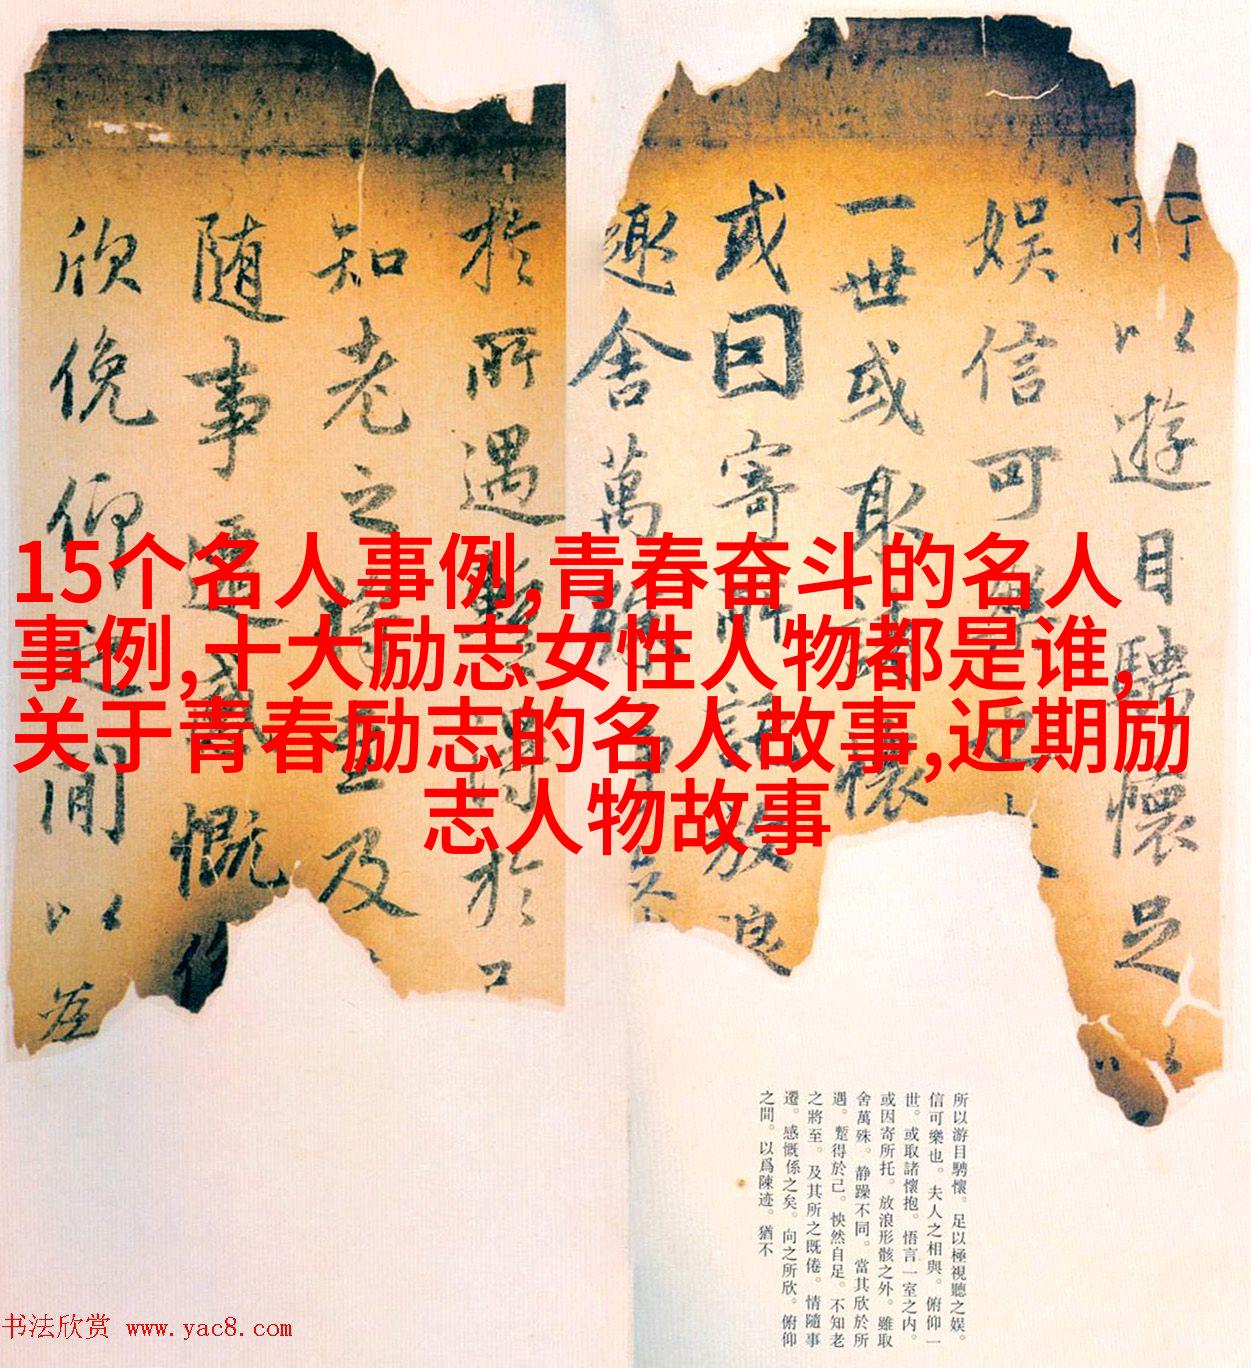 所以遊目騁懷足以
娱信可
一世或取諸懷
或因寄所託放浪
趣舍萬殊
於所遇暫得於己
知老之將至及
随事遷感慨係
欣俛仰之間以為
15个名人事例,青春奋斗的名人
事例,十大励志女性人物都是谁,
关于青春励志的名人故事,近期励
志人物故事
所以游目騁懷。足以極視聽之娱。
信可樂也。夫人之相與。俯仰一
世。或取諸懷抱。悟言一室之内。
或因寄所托。放浪形骸之外。雖取
舍萬殊。静躁不同。當其欣於所
遇。蹔得於己。怏然自足。不知老
之將至。及其所之既倦。情隨事
遷。感慨係之矣。向之所欣。俯仰
之間。以爲陳迹。猶不
书法欣赏 www.yac8.com